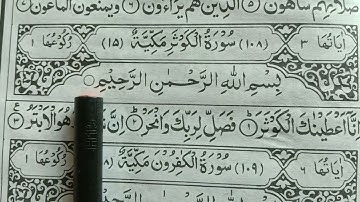 صلاتهم ساهون ۵ الذين هم يراءون ۶ ويمنعون الماعون ۷
اٰيَاتُهَا ٣ (١٠٨) سُوْرَةُ الْكَوْثَرِ مَكِّيَّةٌ (١٥) رُكُوْعُهَا ١
بِسْمِ اللهِ الرَّحْمٰنِ الرَّحِيْمِ
اَعْطَيْنٰكَ الْكَوْثَرَ ۱ فَصَلِّ لِرَبِّكَ وَانْحَرْ ۲ اِنَّ هُوَ الْاَبْتَرُ ۳
اٰيَاتُهَا ٦ (١٠٩) سُوْرَةُ الْكٰفِرُوْنَ مَكِّيَّةٌ رُكُوْعُهَا ١